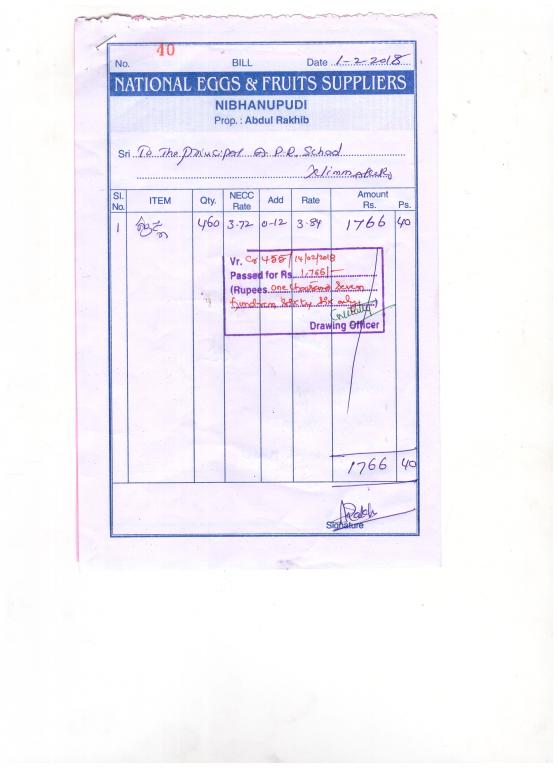 No. 40 BILL Date 1-2-2018
NATIONAL EGGS & FRUITS SUPPLIERS
NIBHANUPUDI
Prop. : Abdul Rakhib
Sri To The Principal A.P.R. School
Sl. No. ITEM Qty. NECC Rate Add Rate Amount Rs. Ps.
1 460 3.72 0-12 3.84 1766 40
Vr. 455 14/02/2018
Passed for Rs 1,766/-
(Rupees one thousand seven
hundred sixty six only
Drawing Officer
1766 40
Signature